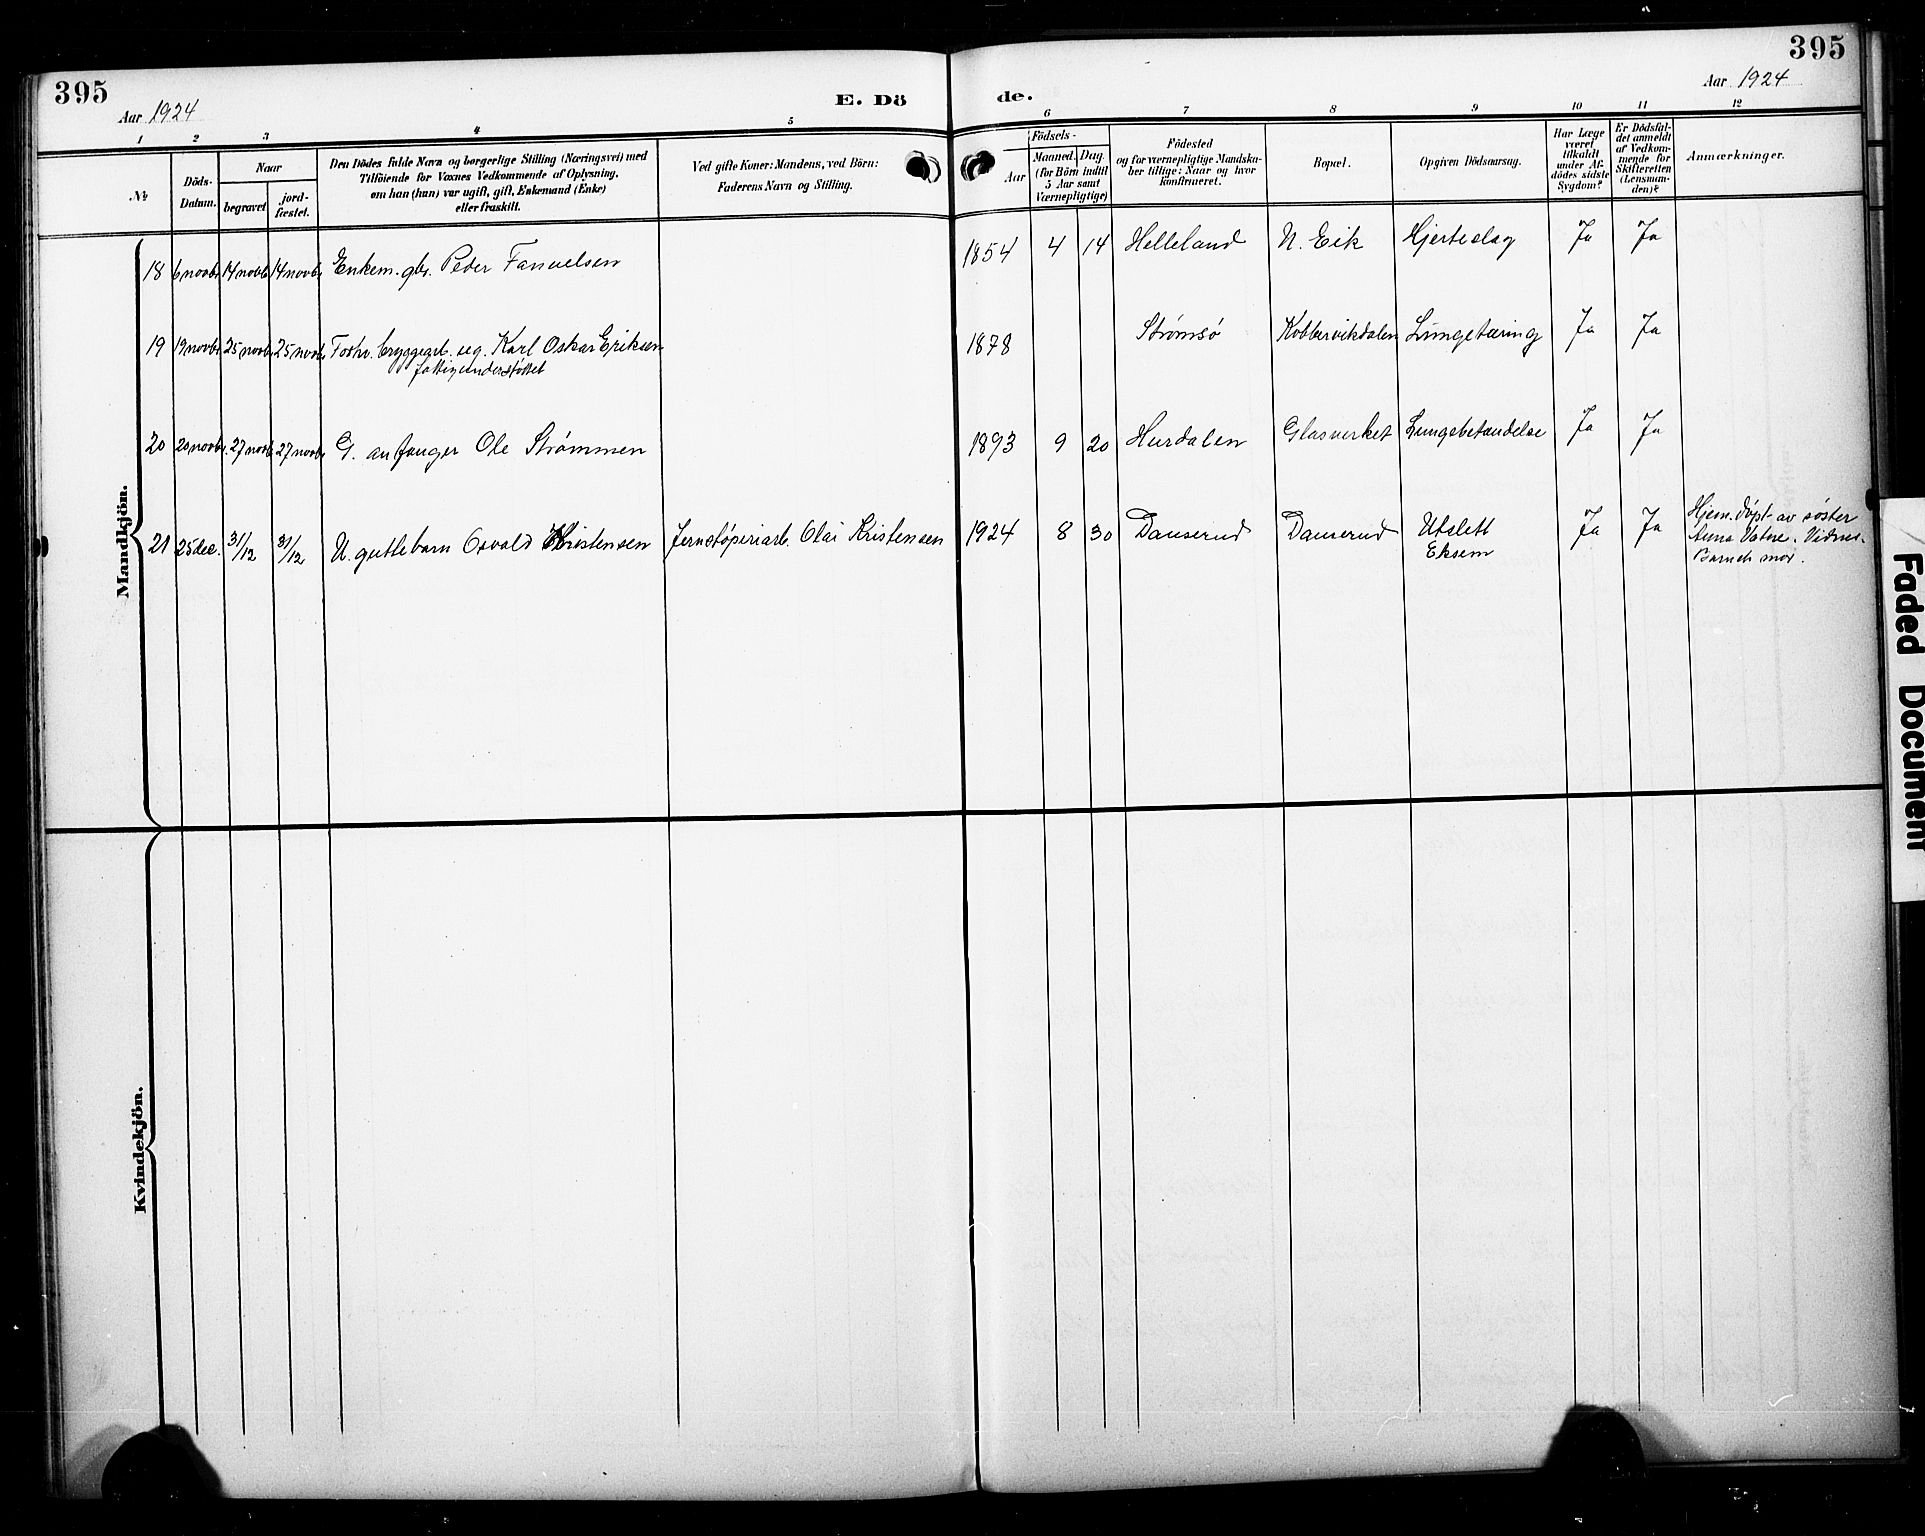 395
Aar 1924
E. Dö
de.
395
Aar 1924
1 2 3 4 5 6 7 8 9 10 11 12
No
Döds-
Datum.
Naar
begravet
jord-
fæstet.
Den Dödes fulde Navn og borgerlige Stilling (Næringsvei) med
Tilföiende for Voxnes Vedkommende af Oplysning,
om han (hun) var ugift, gift, Enkemand (Enke)
eller fraskilt.
Ved gifte Koner: Mandens, ved Börn:
Faderens Navn og Stilling.
Födsels-
Aar
Maaned. Dag.
(for Börn indtil
5 Aar samt
Værnepligtige)
Födested
og for værnepligtige Mandska-
ber tillige: Naar og hvor
konfirmeret.
Bopæl.
Opgiven Dödsaarsag.
Har Læge
været
tilkaldt
under Af-
dödes sidste
Sygdom?
Er Dödsfal-
det anmeldt
af Vedkom-
mende for
Skifteretten
(Lensman-
den)?
Anmærkninger.
Mandkjön.
18 6 novbr. 14 novbr. 14 novbr. Enkem. gbr. Peder Fanuelsen 1854 4 14 Helleland N. Eik Hjerteslag Ja Ja
19 19 novbr. 25 novbr. 25 novbr. Forhv. bryggearb. ug. Karl Oskar Eriksen 1878 Strømsø Kobbervikdalen Lungetæring Ja Ja
fattigunderstøttet
20 20 novbr. 27 novbr. 27 novbr. G. anfanger Ole Strømmen 1893 9 20 Hurdalen Glasverket Lungebetændelse Ja Ja
21 25 dec. 31/12 31/12 U. guttebarn Osvald Kristensen Jernstøperiarb. Olai Kristensen 1924 8 30 Danserud Danserud Utslett Ja Ja Hjem. døpt av søster
Eksem Anna Vatne. Vidner.
Barnets mor.
Kvindekjön.
Faded Document